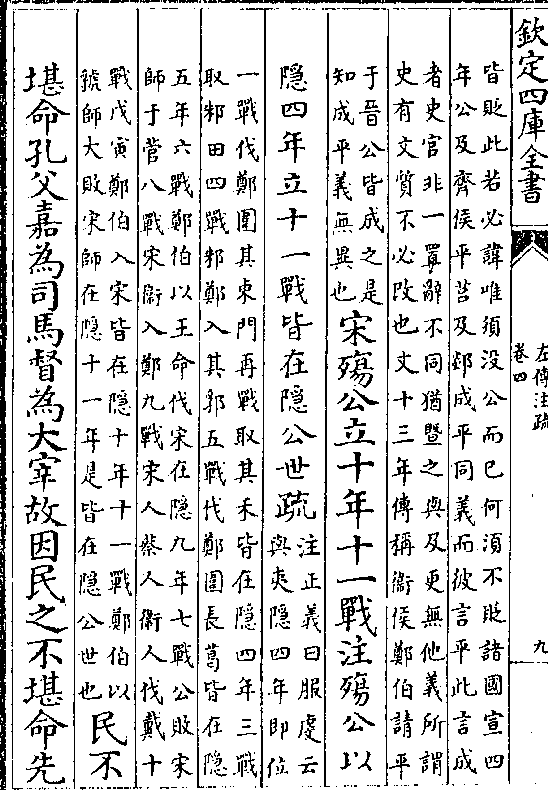 欽定四庫全書
左傳注疏
卷四
九
皆貶此若必諱唯須没公而已何湏不貶諸國宣四
年公及齊侯平莒及郯成平同義而彼言平此言成
者史官非一置辭不同猶暨之與及更無他義所謂
史有文質不必改也文十三年傳稱衛侯鄭伯請平
于晉公皆成之是
知成平義無異也
宋殤公立十年十一戰注殤公以
隱四年立十一戰皆在隱公世疏
注正義曰服虔云
與夷隱四年即位
一戰伐鄭圍其東門再戰取其禾皆在隱四年三戰
取邾田四戰邾鄭入其郛五戰伐鄭圍長葛皆在隱
五年六戰鄭伯以王命伐宋在隱九年七戰公敗宋
師于菅八戰宋衛入鄭九戰宋人蔡人衛人伐戴十
戰戊寅鄭伯入宋皆在隱十年十一戰鄭伯以
虢師大敗宋師在隱十一年是皆在隱公世也
民不
堪命孔父嘉為司馬督為大宰故因民之不堪命先